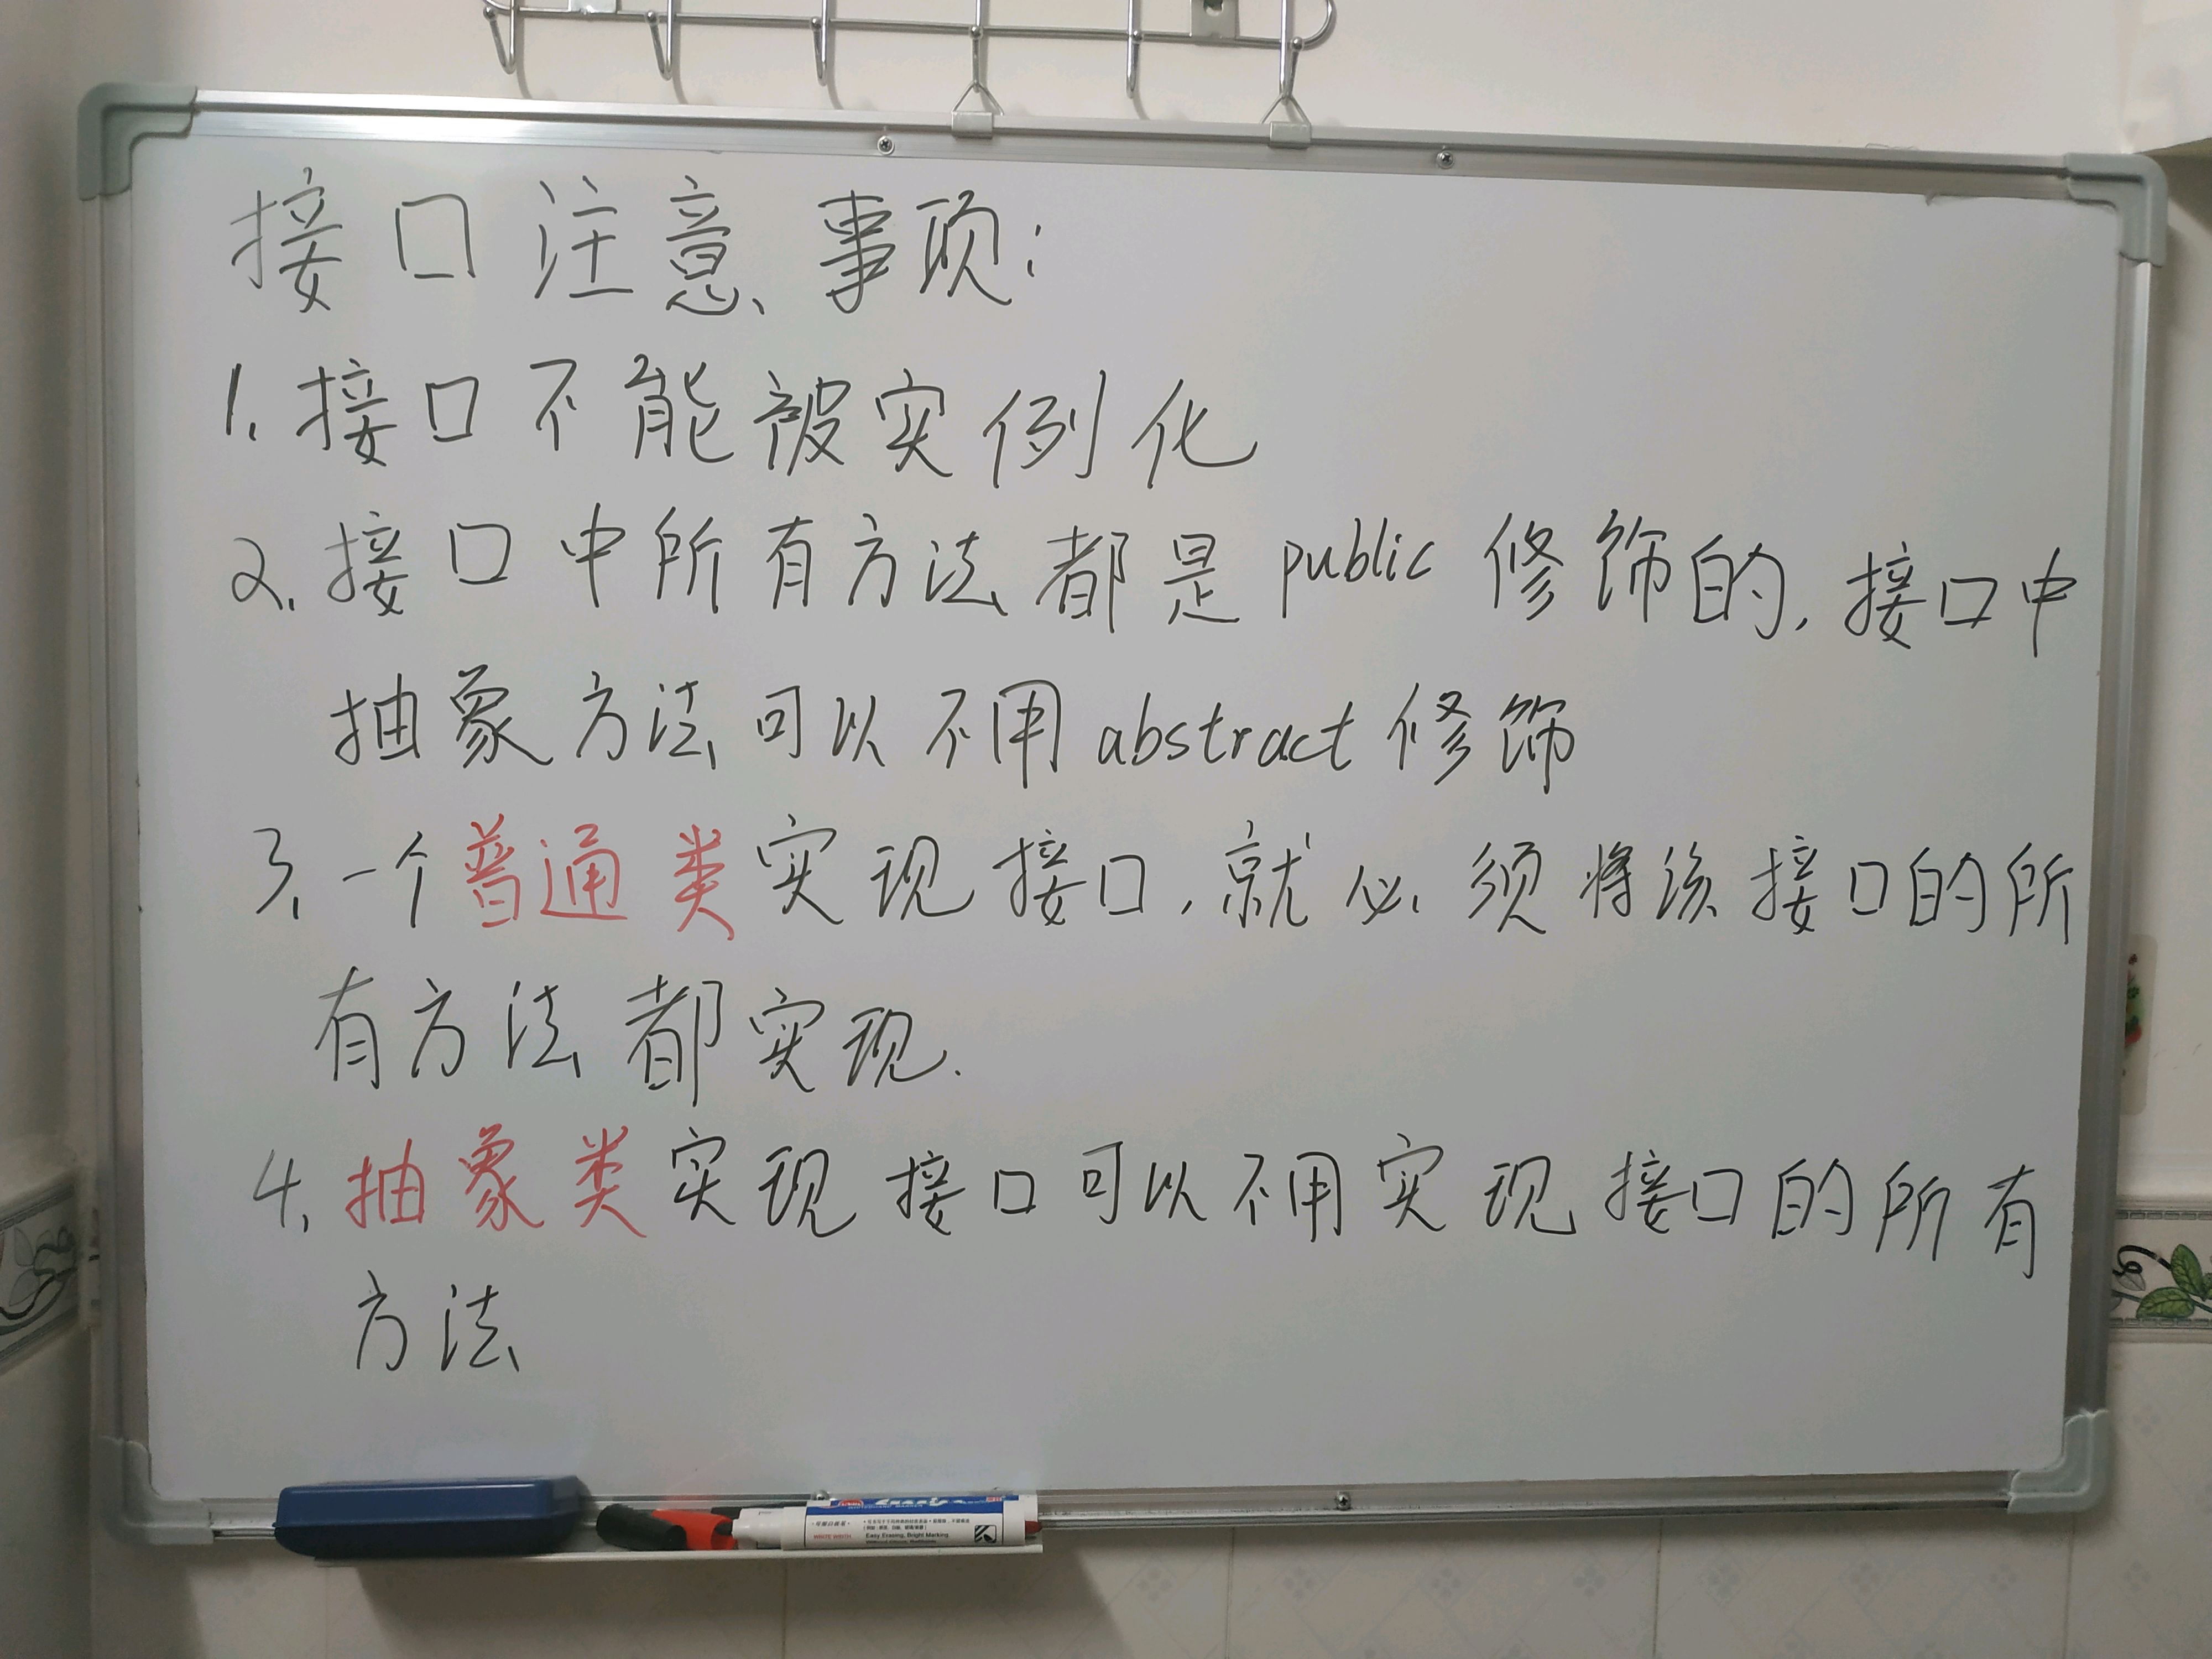 接口注意事项:
1.接口不能被实例化
2.接口中所有方法都是public修饰的,接口中
抽象方法可以不用abstract修饰
3.一个普通类实现接口,就必须将该接口的所
有方法都实现.
4.抽象类实现接口可以不用实现接口的所有
方法
Easy Erasing, Bright Marking